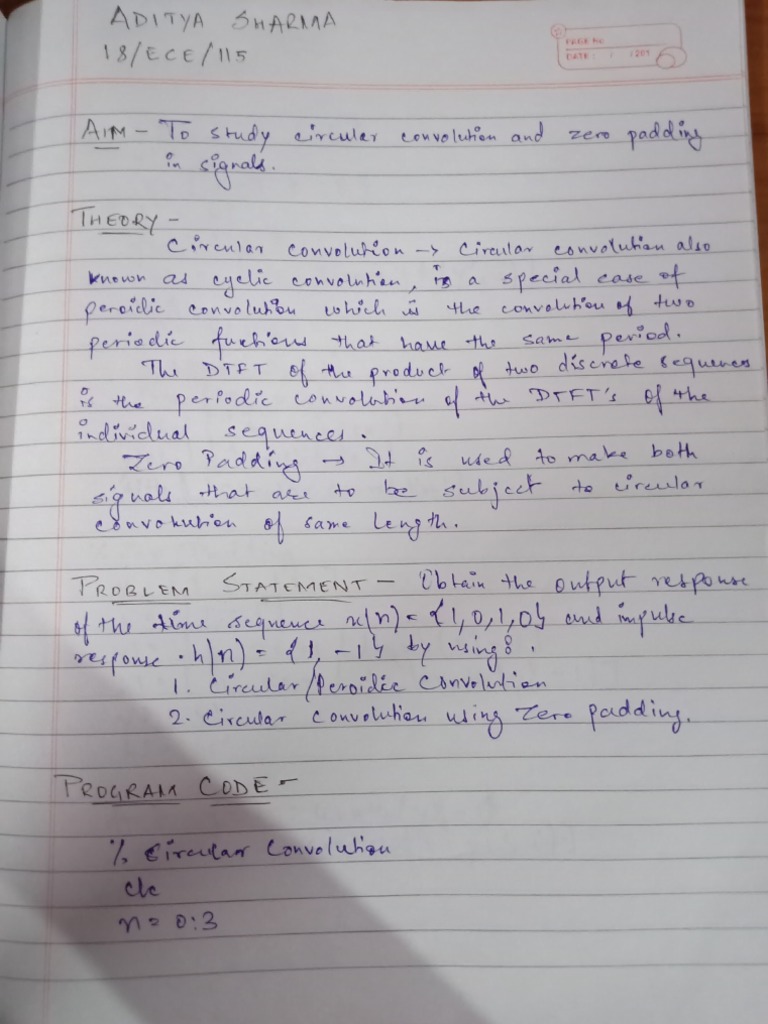 ADITYA SHARMA
18/ECE/115
PAGE NO.
DATE: / /201
AIM - To study circular convolution and zero padding
in signals.
THEORY -
Circular convolution → Circular convolution also
known as cyclic convolution, is a special case of
peroidic convolution which is the convolution of two
periodic fuctions that have the same period.
The DTFT of the product of two discrete sequences
is the periodic convolution of the DTFT's of the
individual sequences.
Zero Padding → It is used to make both
signals that are to be subject to circular
convokution of same length.
PROBLEM STATEMENT - Obtain the output response
of the time sequence x(n) = {1,0,1,0} and impulse
response . h(n) = {1, -1} by using: .
1. Circular/Peroidic Convolution
2. Circular Convolution using Zero padding.
PROGRAM CODE -
% Circular Convolution
clc
n = 0:3